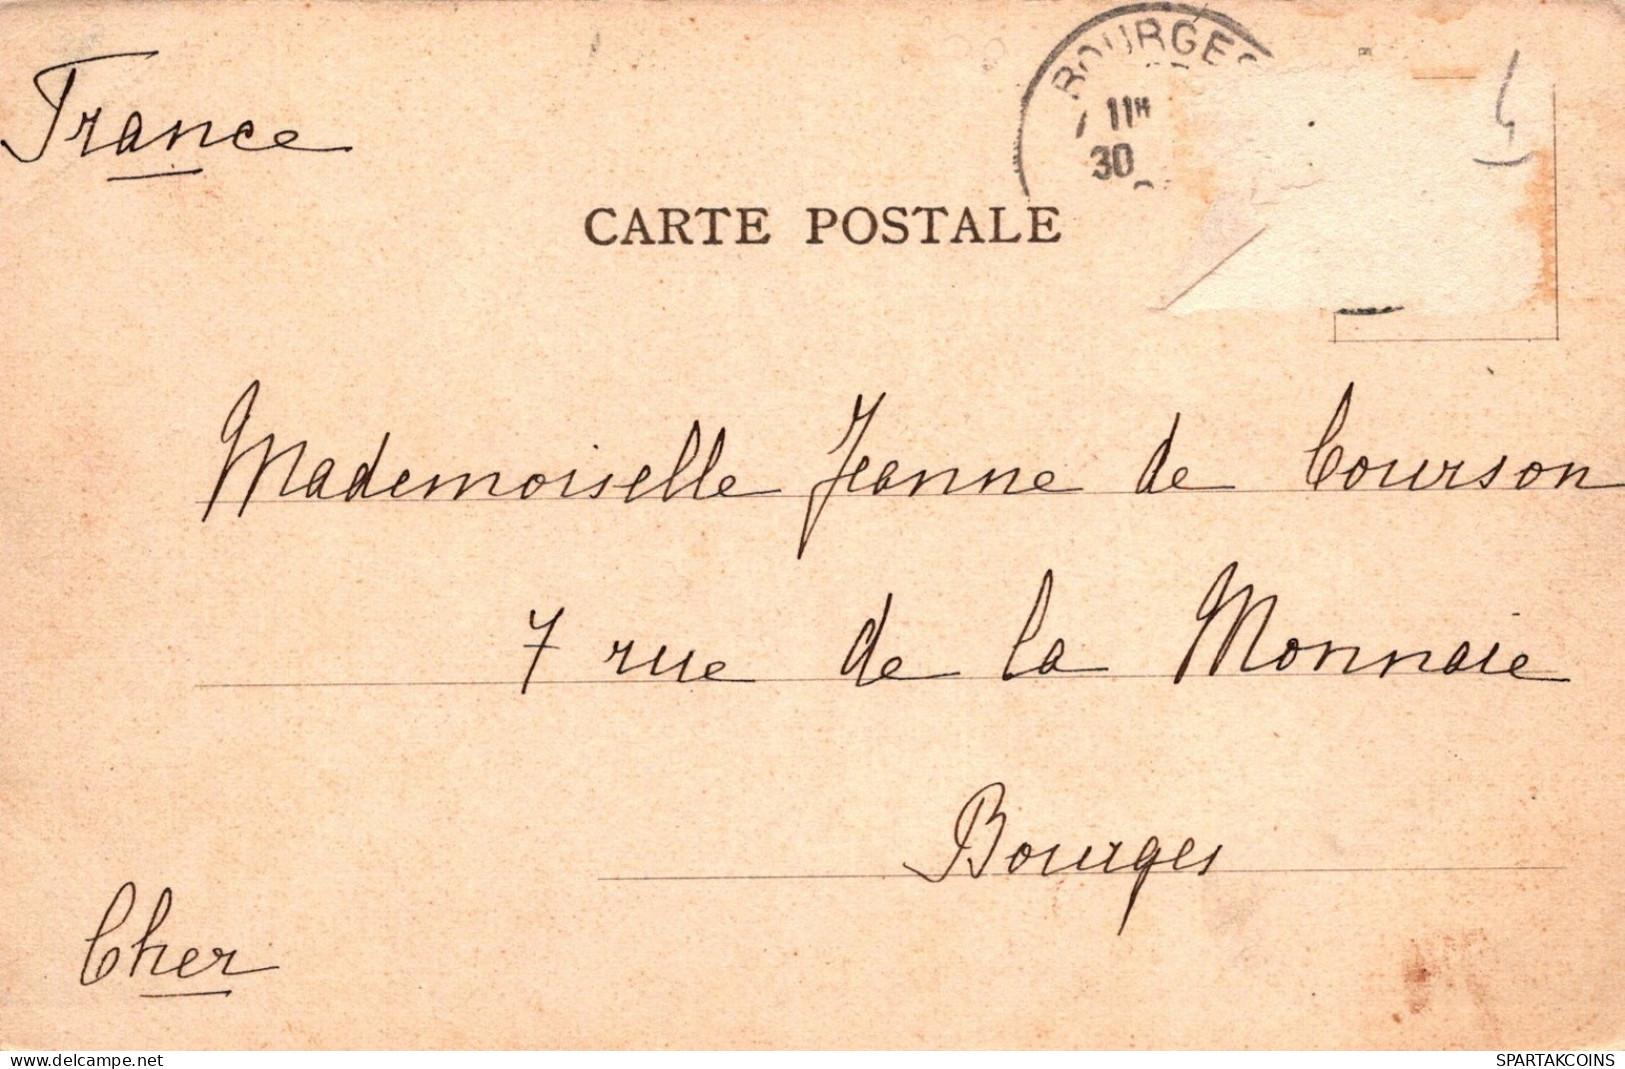 France
BOURGES
11H
30
CARTE POSTALE
Mademoiselle Jeanne de Courson
7 rue de la Monnaie
Bourges
Cher
www.delcampe.net
SPARTAKCOINS